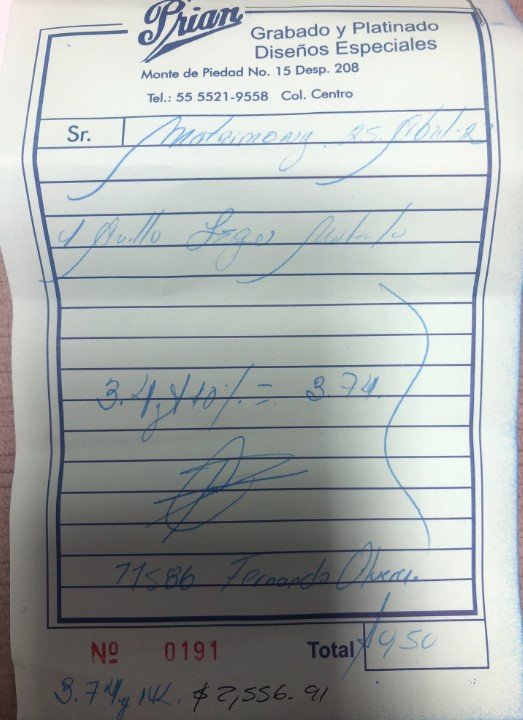 Prian
Grabado y Platinado
Diseños Especiales
Monte de Piedad No. 15 Desp. 208
Tel.: 55 5521-9558 Col. Centro
Sr.
1 Anillo
3.4g + 10% = 3.74
11586 Fernando
Nº 0191
Total $450
3.74g 14K. $2,556.91